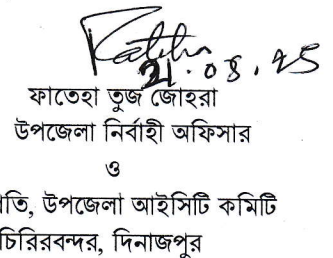 21.08.25
ফাতেহা তুজ জোহরা
উপজেলা নির্বাহী অফিসার
ও
উপজেলা আইসিটি কমিটি
চিরিরবন্দর, দিনাজপুর